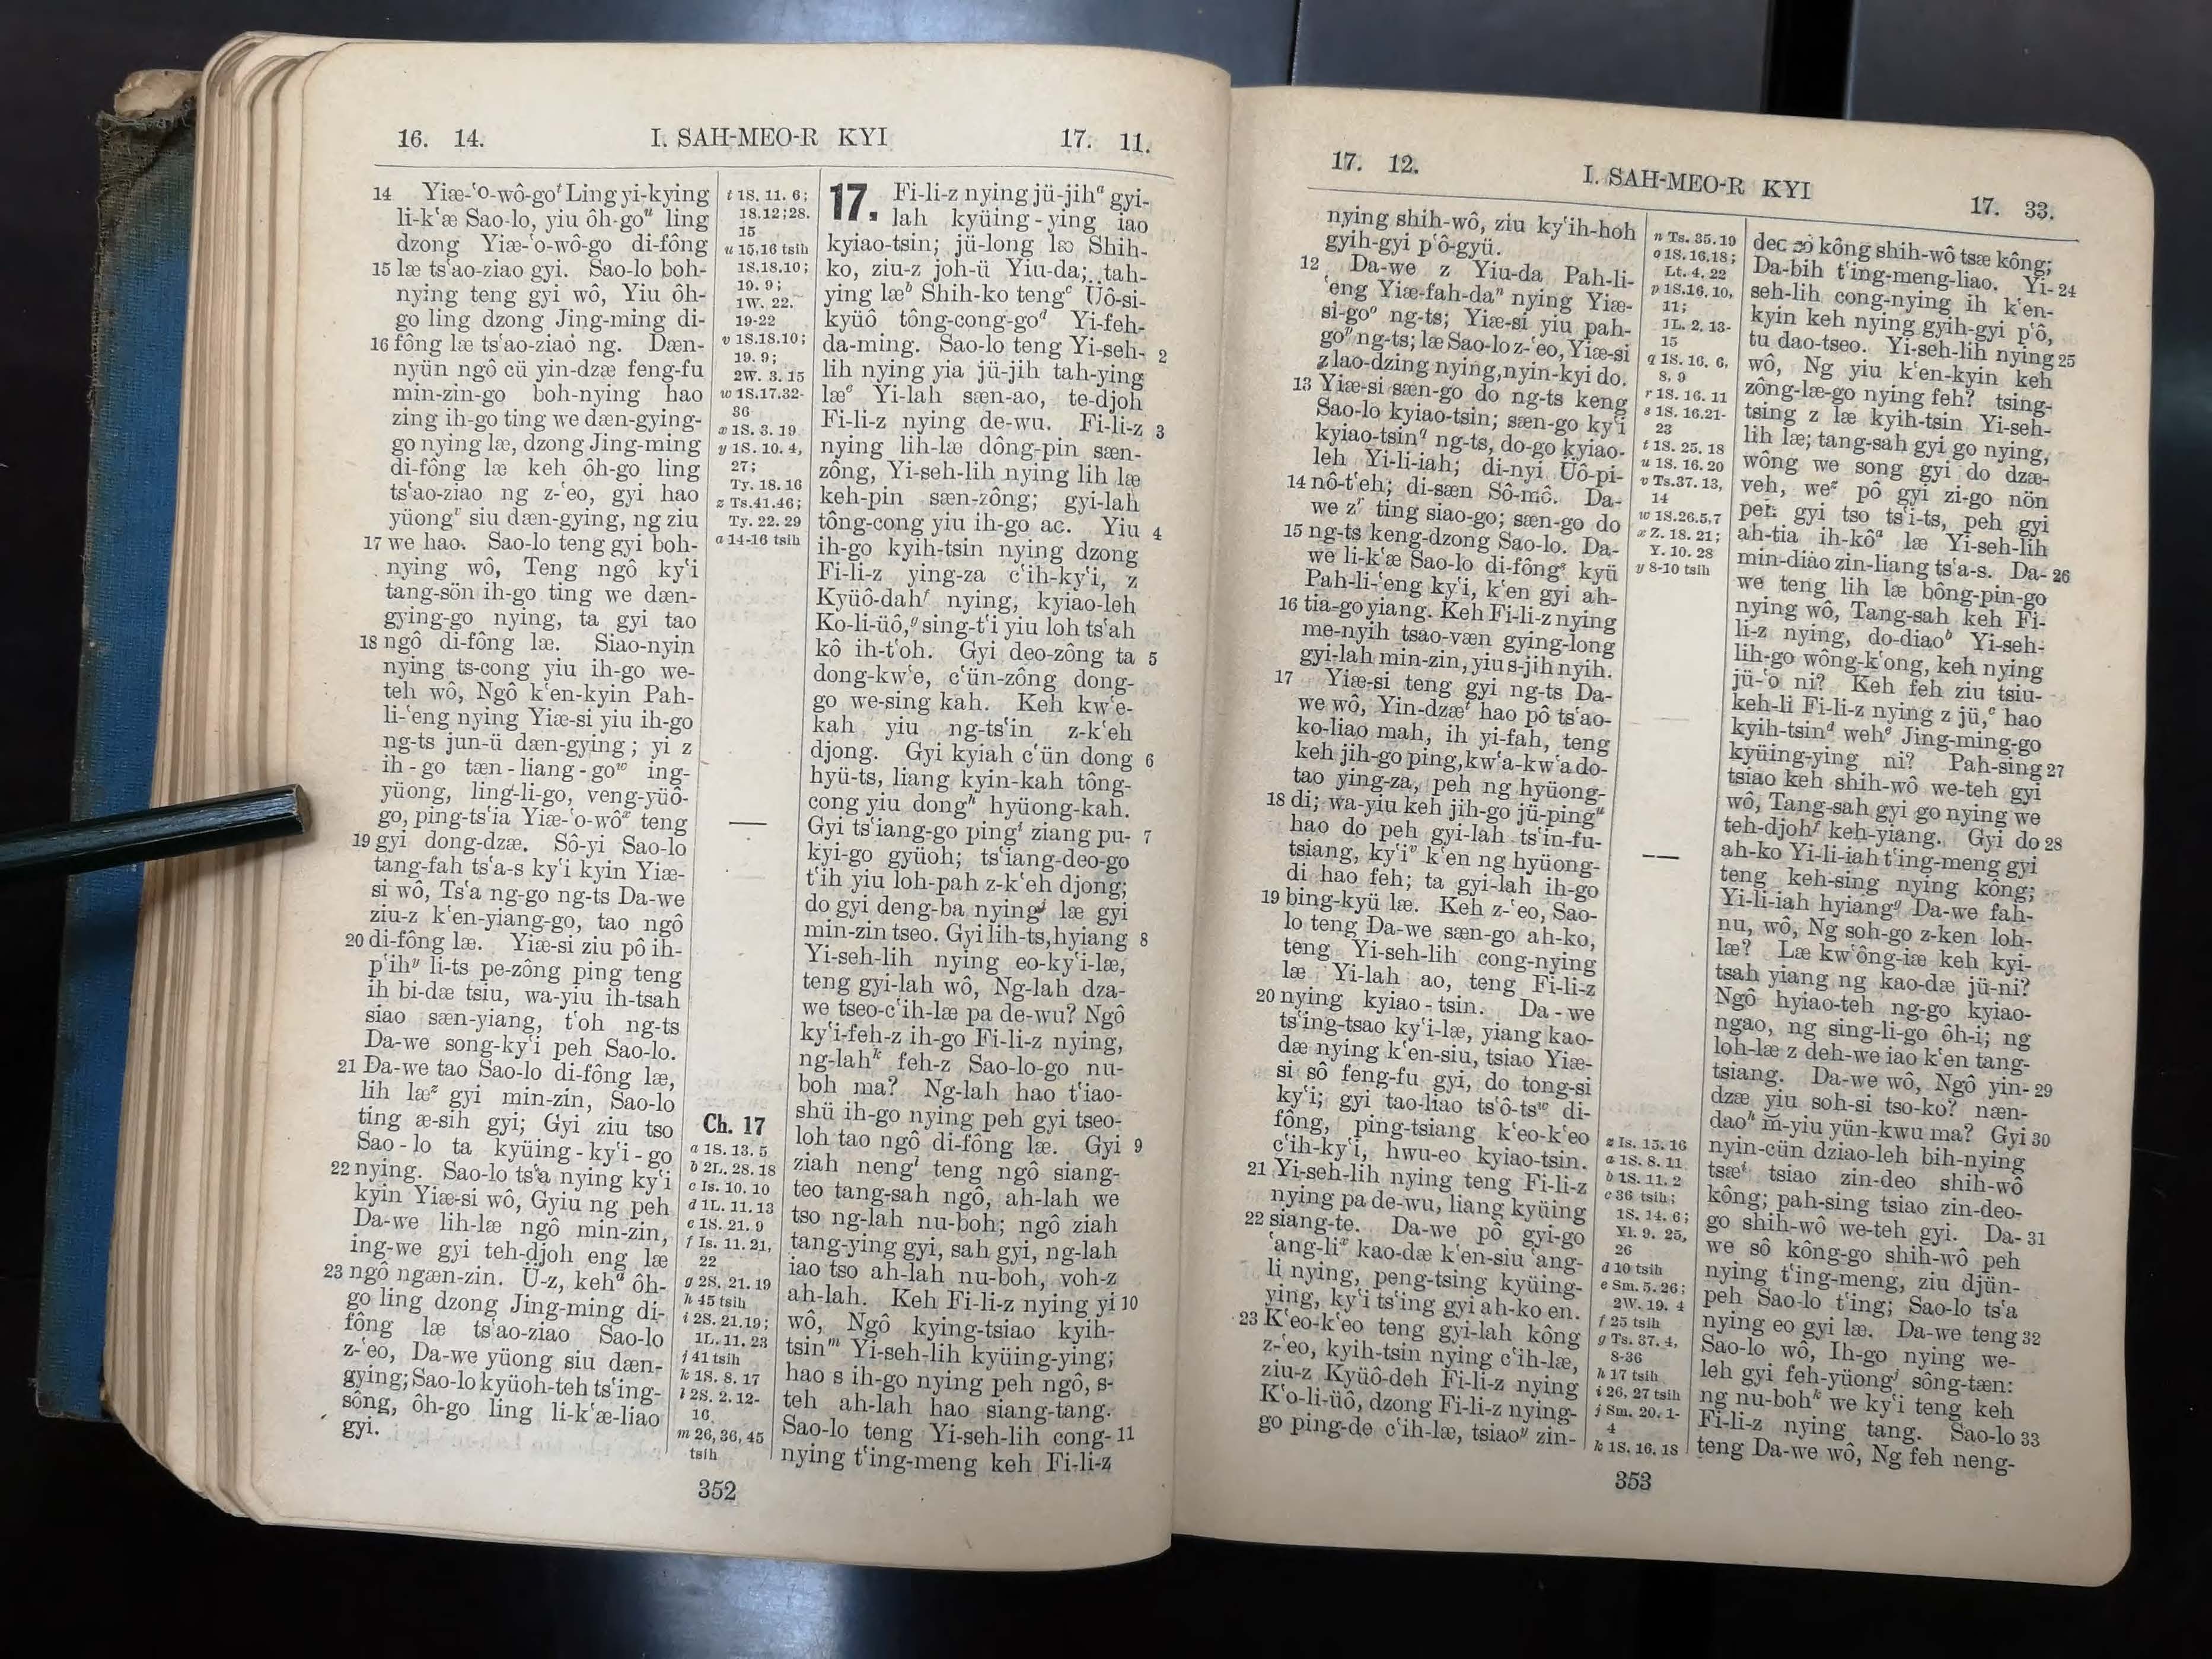 16. 14.
I. SAH-MEO-R KYI
17. 11.
14 Yiæ-ʻo-wô-goᵗ Ling yi-kying
li-kʻæ Sao-lo, yiu ôh-goᵘ ling
dzong Yiæ-ʻo-wô-go di-fông
15 læ tsʻao-ziao gyi. Sao-lo boh-
nying teng gyi wô, Yiu ôh-
go ling dzong Jing-ming di-
16 fông læ tsʻao-ziao ng. Dæn-
nyün ngô cü yin-dzæ feng-fu
min-zin-go boh-nying hao
zing ih-go ting we dæn-gying-
go nying læ, dzong Jing-ming
di-fông læ keh ôh-go ling
tsʻao-ziao ng z-ʻeo, gyi hao
yüongᵛ siu dæn-gying, ng ziu
17 we hao. Sao-lo teng gyi boh-
nying wô, Teng ngô kyʻi
tang-sön ih-go ting we dæn-
gying-go nying, ta gyi tao
18 ngô di-fông læ. Siao-nyin
nying ts-cong yiu ih-go we-
teh wô, Ngô kʻen-kyin Pah-
li-ʻeng nying Yiæ-si yiu ih-go
ng-ts jun-ü dæn-gying; yi z
ih-go tæn-liang-goʷ ing-
yüong, ling-li-go, veng-yüô-
go, ping-tsʻia Yiæ-ʻo-wôˣ teng
19 gyi dong-dzæ. Sô-yi Sao-lo
tang-fah tsʻa-s kyʻi kyin Yiæ-
si wô, Tsʻa ng-go ng-ts Da-we
ziu-z kʻen-yiang-go, tao ngô
20 di-fông læ. Yiæ-si ziu pô ih-
pʻihʸ li-ts pe-zông ping teng
ih bi-dæ tsiu, wa-yiu ih-tsah
siao sæn-yiang, tʻoh ng-ts
Da-we song-kyʻi peh Sao-lo.
21 Da-we tao Sao-lo di-fông læ,
lih læᶻ gyi min-zin, Sao-lo
ting æ-sih gyi; Gyi ziu tso
Sao-lo ta kyüing-kyʻi-go
22 nying. Sao-lo tsʻa nying kyʻi
kyin Yiæ-si wô, Gyiu ng peh
Da-we lih-læ ngô min-zin,
ing-we gyi teh-djoh eng læ
23 ngô ngæn-zin. Ü-z, kehᵃ ôh-
go ling dzong Jing-ming di-
fông læ tsʻao-ziao Sao-lo
z-ʻeo, Da-we yüong siu dæn-
gying; Sao-lo kyüoh-teh tsʻing-
sông, ôh-go ling li-kʻæ-liao
gyi.
t 1S. 11. 6;
18.12;28.
15
u 15,16 tsih
1S.18.10;
19. 9;
1W. 22.
19-22
v 1S.18.10;
19. 9;
2W. 3. 15
w 1S.17.32-
36
x 1S. 3. 19
y 1S. 10. 4,
27;
Ty. 18. 16
z Ts.41.46;
Ty. 22. 29
a 14-16 tsih
Ch. 17
a 1S. 13. 5
b 2L. 28. 18
c Is. 10. 10
d 1L. 11. 13
e 1S. 21. 9
f Is. 11. 21,
22
g 2S. 21. 19
h 45 tsih
i 2S. 21.19;
1L. 11. 23
j 41 tsih
k 1S. 8. 17
l 2S. 2. 12-
16
m 26, 36, 45
tsih
17. Fi-li-z nying jü-jihᵃ gyi-
lah kyüing-ying iao
kyiao-tsin; jü-long læ Shih-
ko, ziu-z joh-ü Yiu-da; tah-
ying læᵇ Shih-ko tengᶜ Üô-si-
kyüô tông-cong-goᵈ Yi-feh-
da-ming. Sao-lo teng Yi-seh- 2
lih nying yia jü-jih tah-ying
læᵉ Yi-lah sæn-ao, te-djoh
Fi-li-z nying de-wu. Fi-li-z 3
nying lih-læ dông-pin sæn-
zông, Yi-seh-lih nying lih læ
keh-pin sæn-zông; gyi-lah
tông-cong yiu ih-go ao. Yiu 4
ih-go kyih-tsin nying dzong
Fi-li-z ying-za cʻih-kyʻi, z
Kyüô-dahᶠ nying, kyiao-leh
Ko-li-üô,ᵍ sing-tʻi yiu loh tsʻah
kô ih-tʻoh. Gyi deo-zông ta 5
dong-kwʻe, cʻün-zông dong-
go we-sing kah. Keh kwʻe-
kah yiu ng-tsʻin z-kʻeh
djong. Gyi kyiah cʻün dong 6
hyü-ts, liang kyin-kah tông-
cong yiu dongʰ hyüong-kah.
Gyi tsʻiang-go pingⁱ ziang pu- 7
kyi-go gyüoh; tsʻiang-deo-go
tʻih yiu loh-pah z-kʻeh djong;
do gyi deng-ba nyingʲ læ gyi
min-zin tseo. Gyi lih-ts, hyiang 8
Yi-seh-lih nying eo-kyʻi-læ,
teng gyi-lah wô, Ng-lah dza-
we tseo-cʻih-læ pa de-wu? Ngô
kyʻi-feh-z ih-go Fi-li-z nying,
ng-lahᵏ feh-z Sao-lo-go nu-
boh ma? Ng-lah hao tʻiao-
shü ih-go nying peh gyi tseo-
loh tao ngô di-fông læ. Gyi 9
ziah nengˡ teng ngô siang-
teo tang-sah ngô, ah-lah we
tso ng-lah nu-boh; ngô ziah
tang-ying gyi, sah gyi, ng-lah
iao tso ah-lah nu-boh, voh-z
ah-lah. Keh Fi-li-z nying yi 10
wô, Ngô kying-tsiao kyih-
tsinᵐ Yi-seh-lih kyüing-ying;
hao s ih-go nying peh ngô, s-
teh ah-lah hao siang-tang.
Sao-lo teng Yi-seh-lih cong- 11
nying tʻing-meng keh Fi-li-z
352
17. 12.
I. SAH-MEO-R KYI
17. 33.
nying shih-wô, ziu kyʻih-hoh
gyih-gyi pʻô-gyü.
12 Da-we z Yiu-da Pah-li-
ʻeng Yiæ-fah-daⁿ nying Yiæ-
si-goᵒ ng-ts; Yiæ-si yiu pah-
goᵖ ng-ts; læ Sao-lo z-ʻeo, Yiæ-si
z lao-dzing nying, nyin-kyi do.
13 Yiæ-si sæn-go do ng-ts keng
Sao-lo kyiao-tsin; sæn-go kyʻi
kyiao-tsin^q ng-ts, do-go kyiao-
leh Yi-li-iah; di-nyi Üô-pi-
14 nô-tʻeh; di-sæn Sô-mô. Da-
we zʳ ting siao-go; sæn-go do
15 ng-ts keng-dzong Sao-lo. Da-
we li-kʻæ Sao-lo di-fôngˢ kyü
Pah-li-ʻeng kyʻi, kʻen gyi ah-
16 tia-go yiang. Keh Fi-li-z nying
me-nyih tsao-væn gying-long
gyi-lah min-zin, yiu s-jih nyih.
17 Yiæ-si teng gyi ng-ts Da-
we wô, Yin-dzæᵗ hao pô tsʻao-
ko-liao mah, ih yi-fah, teng
keh jih-go ping, kwʻa-kwʻa do-
tao ying-za, peh ng hyüong-
18 di; wa-yiu keh jih-go jü-pingᵘ
hao do peh gyi-lah tsʻin-fu-
tsiang, kyʻiᵛ kʻen ng hyüong-
di hao feh; ta gyi-lah ih-go
19 bing-kyü læ. Keh z-ʻeo, Sao-
lo teng Da-we sæn-go ah-ko,
teng Yi-seh-lih cong-nying
læ Yi-lah ao, teng Fi-li-z
20 nying kyiao-tsin. Da-we
tsʻing-tsao kyʻi-læ, yiang kao-
dæ nying kʻen-siu, tsiao Yiæ-
si sô feng-fu gyi, do tong-si
kyʻi; gyi tao-liao tsʻô-tsʷ di-
fông, ping-tsiang kʻeo-kʻeo
cʻih-kyʻi, hwu-eo kyiao-tsin.
21 Yi-seh-lih nying teng Fi-li-z
nying pa de-wu, liang kyüing
22 siang-te. Da-we pô gyi-go
ʻang-liˣ kao-dæ kʻen-siu ʻang-
li nying, peng-tsing kyüing-
ying, kyʻi tsʻing gyi ah-ko en.
23 Kʻeo-kʻeo teng gyi-lah kông
z-ʻeo, kyih-tsin nying cʻih-læ,
ziu-z Kyüô-deh Fi-li-z nying
Kʻo-li-üô, dzong Fi-li-z nying-
go ping-de cʻih-læ, tsiaoʸ zin-
n Ts. 35. 19
o 1S. 16.18;
Lt. 4. 22
p 1S.16. 10,
11;
1L. 2. 13-
15
q 1S. 16. 6,
8, 9
r 1S. 16. 11
s 1S. 16.21-
23
t 1S. 25. 18
u 1S. 16.20
v Ts.37. 13,
14
w 1S.26.5,7
x Z. 18. 21;
Y. 10. 28
y 8-10 tsih
z Is. 15. 16
a 1S. 8. 11
b 1S. 11. 2
c 36 tsih;
1S. 14. 6;
Yl. 9. 25,
26
d 10 tsih
e Sm. 5. 26;
2W. 19. 4
f 25 tsih
g Ts. 37. 4,
8-36
h 17 tsih
i 26, 27 tsih
j Sm. 20. 1-
4
k 1S. 16. 18
deo kông shih-wô tsæ kông;
Da-bih tʻing-meng-liao. Yi- 24
seh-lih cong-nying ih kʻen-
kyin keh nying gyih-gyi pʻô,
tu dao-tseo. Yi-seh-lih nying 25
wô, Ng yiu kʻen-kyin keh
zông-læ-go nying feh? tsing-
tsing z læ kyih-tsin Yi-seh-
lih læ; tang-sah gyi go nying,
wông we song gyi do dzæ-
veh, weᶻ pô gyi zi-go nön
peh gyi tso tsʻi-ts, peh gyi
ah-tia ih-kôᵃ læ Yi-seh-lih
min-diao zin-liang tsʻa-s. Da- 26
we teng lih læ bông-pin-go
nying wô, Tang-sah keh Fi-
li-z nying, do-diaoᵇ Yi-seh-
lih-go wông-kʻong, keh nying
jü-ʻo ni? Keh feh ziu tsiu-
keh-li Fi-li-z nying z jü,ᶜ hao
kyih-tsinᵈ wehᵉ Jing-ming-go
kyüing-ying ni? Pah-sing 27
tsiao keh shih-wô we-teh gyi
wô, Tang-sah gyi go nying we
teh-djohᶠ keh-yiang. Gyi do 28
ah-ko Yi-li-iah tʻing-meng gyi
teng keh-sing nying kông;
Yi-li-iah hyiangᵍ Da-we fah-
nu, wô, Ng soh-go z-ken loh-
læ? Læ kwʻông-iæ keh kyi-
tsah yiang ng kao-dæ jü-ni?
Ngô hyiao-teh ng-go kyiao-
ngao, ng sing-li-go ôh-i; ng
loh-læ z deh-we iao kʻen tang-
tsiang. Da-we wô, Ngô yin- 29
dzæ yiu soh-si tso-ko? næn-
daoʰ m̄-yiu yün-kwu ma? Gyi 30
nyin-cün dziao-leh bih-nying
tsæⁱ tsiao zin-deo shih-wô
kông; pah-sing tsiao zin-deo-
go shih-wô we-teh gyi. Da- 31
we sô kông-go shih-wô peh
nying tʻing-meng, ziu djün-
peh Sao-lo tʻing; Sao-lo tsʻa
nying eo gyi læ. Da-we teng 32
Sao-lo wô, Ih-go nying we-
leh gyi feh-yüongʲ sông-tæn:
ng nu-bohᵏ we kyʻi teng keh
Fi-li-z nying tang. Sao-lo 33
teng Da-we wô, Ng feh neng-
353